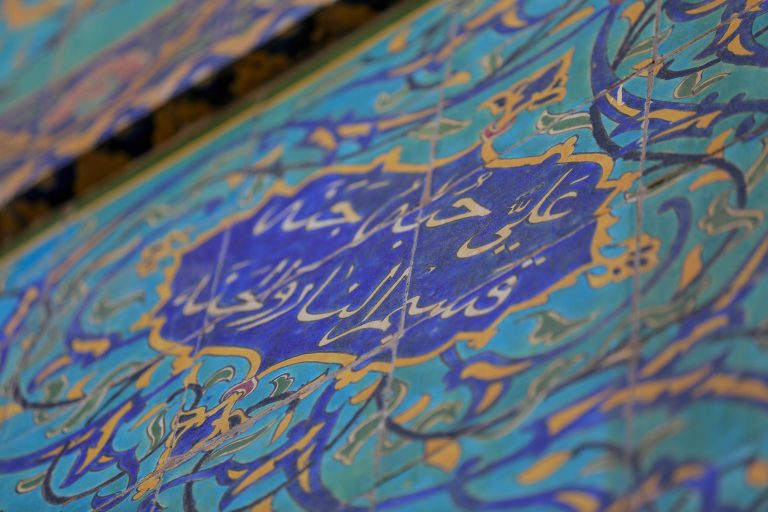 عَلِيٌّ حُبُّهُ جُنَّة
قَسِيمُ النار والجنة